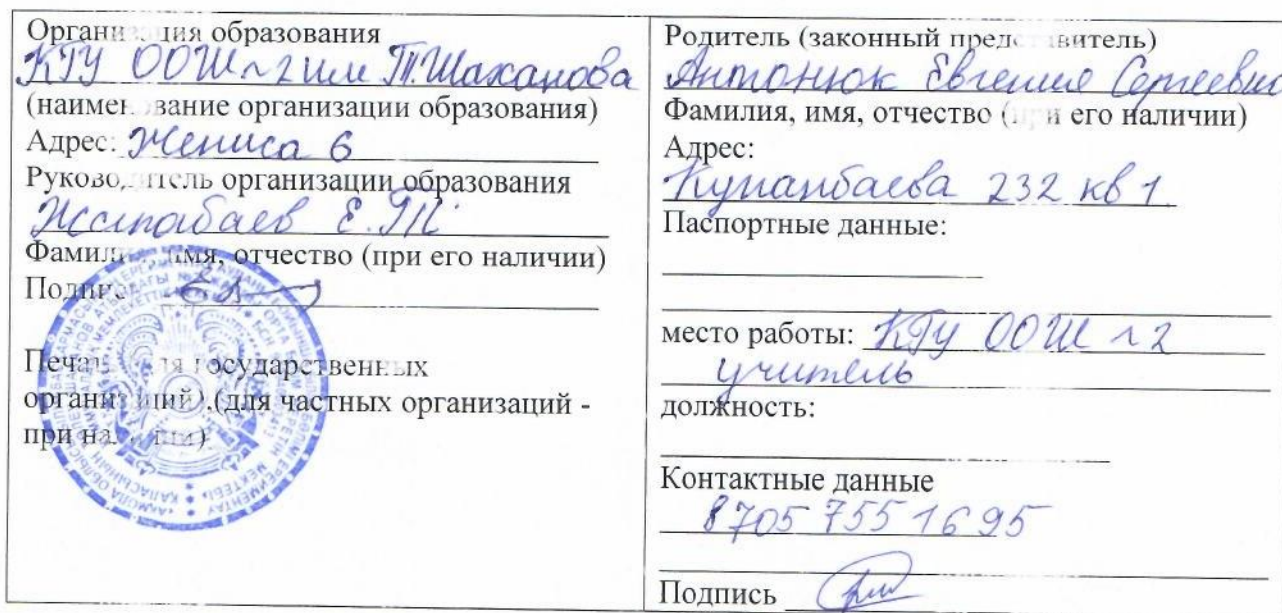 Организация образования
КГУ ООШ №2 им Т.Шаханова
(наименование организации образования)
Адрес: Жениса 6
Руководитель организации образования
Е.Т.
Фамилия, имя, отчество (при его наличии)
Подпись
Печать для государственных
организаций).(для частных организаций -
при наличии)
Родитель (законный представитель)
Антонюк Евгения Сергеевна
Фамилия, имя, отчество (при его наличии)
Адрес:
Кунанбаева 232 кв 1
Паспортные данные:
место работы: КГУ ООШ №2
учитель
должность:
Контактные данные
8705 755 1695
Подпись